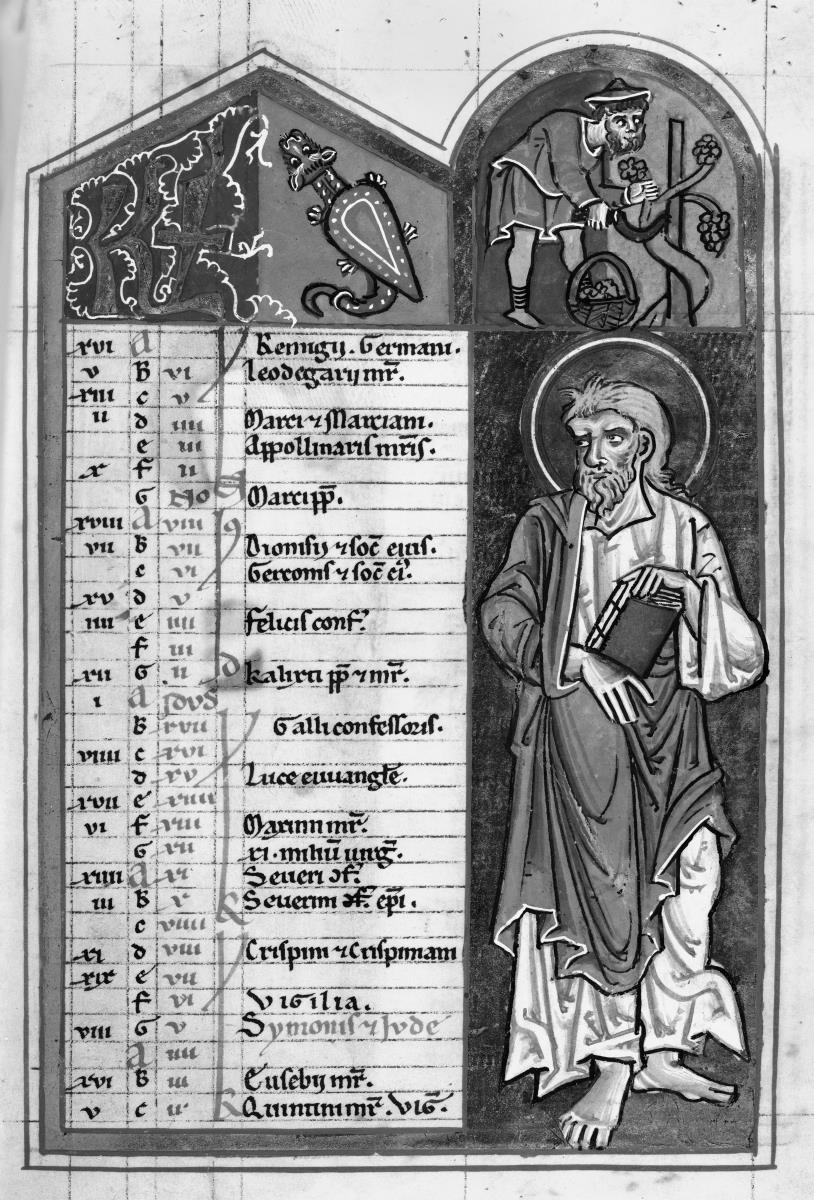 KL
xvi a Remigii. Germani.
v B vi Leodegarii mr̄.
xiii c v
ii d iiii Marci ⁊ Marciani.
e iii Appollinaris mr̄is.
x f ii
G No Marci pp̄.
xviii a viii
vii B vii Dionisii ⁊ soc̄ eius.
c vi Gereonis ⁊ soc̄ ei᷒.
xv d v
iiii e iiii Felicis conf.
f iii
xii G ii Kalixti pp̄ ⁊ mr̄.
i a Idus
B xvii Galli confessoris.
viiii c xvi
d xv Luce euuangłe.
xvii e xiiii
vi f xiii Maximi mr̄.
G xii xi. miliū uirḡ.
xiiii a xi Seueri ↄf.
iii B x Seuerini ↄf. ep̄i.
c viiii
xi d viii Crispini ⁊ Crispiniani
xix e vii
f vi Vigilia.
viii G v Symonis ⁊ Jude
a iiii
xvi B iii Eusebii mr̄.
v c ii Quintini mr̄. Vig̅.